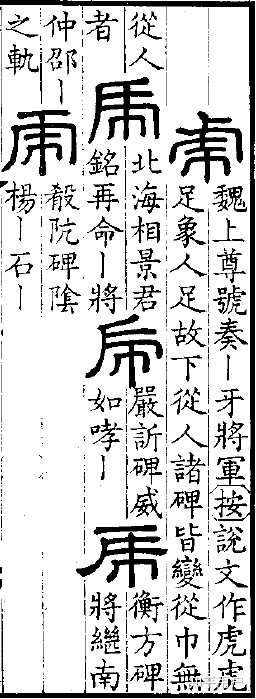 虎
魏上尊號奏丨牙將軍按說文作虎虎
足象人足故下從人諸碑皆變從巾無
從人
者
虎
北海相景君
銘再命丨將
虎
嚴訢碑威
如哮丨
虎
衡方碑
將繼南
仲邵丨
之軌
虎
殽阬碑陰
楊丨石丨